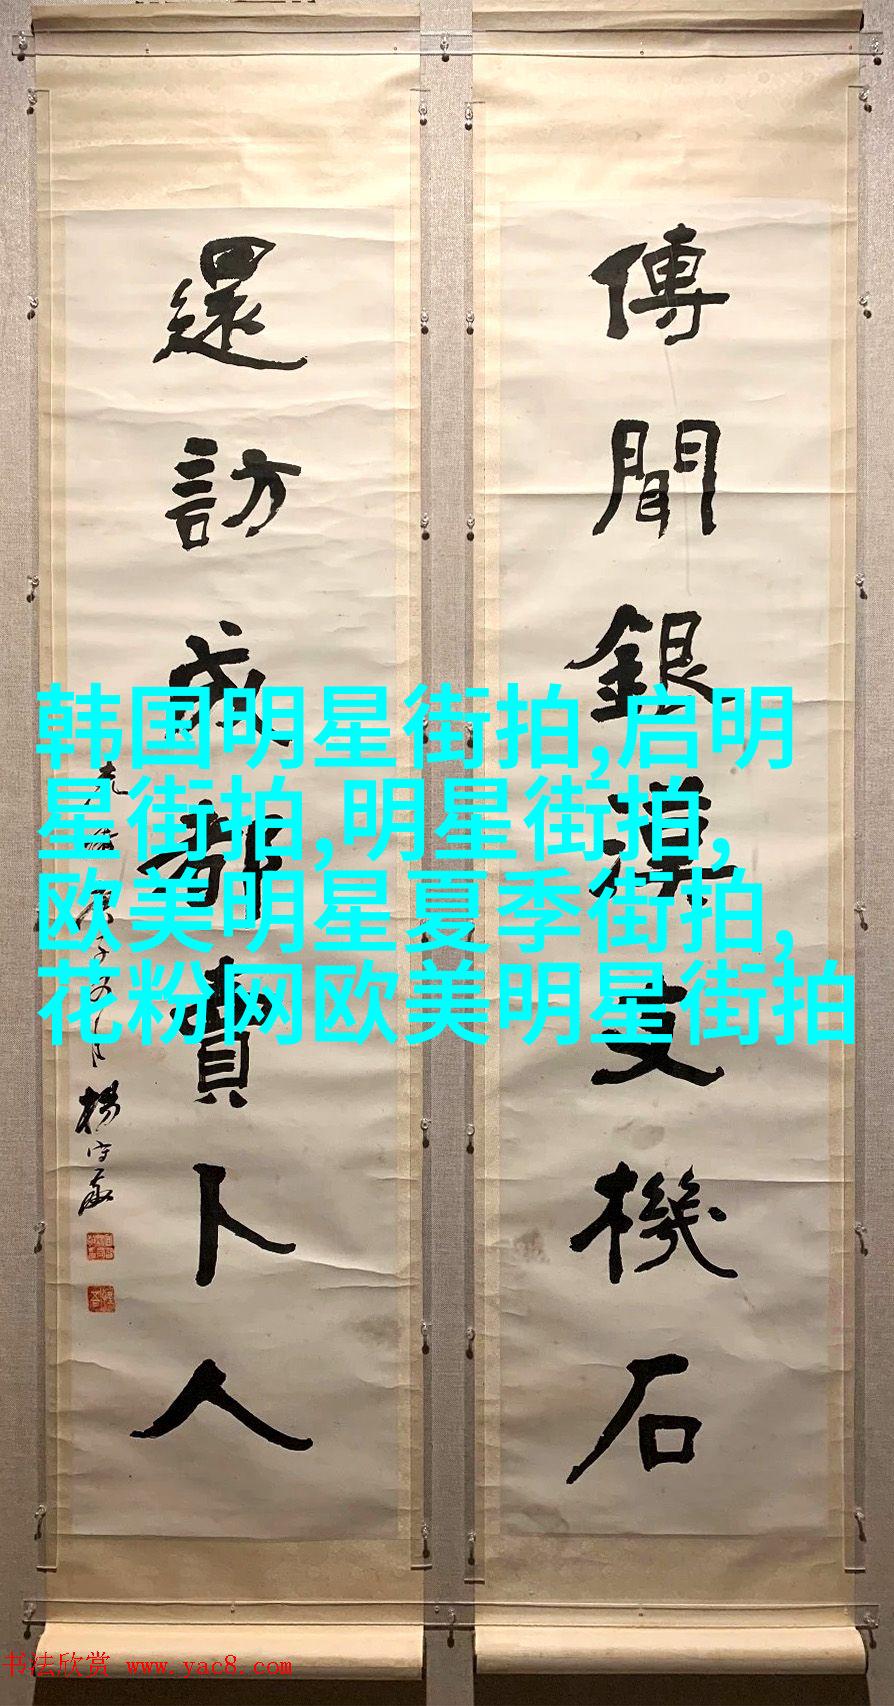 傳聞銀漢支機石
還訪成都賣卜人
楊守敬
韩国明星街拍,启明
星街拍,明星街拍,
欧美明星夏季街拍,
花粉网欧美明星街拍
书法欣赏 www.yac8.com